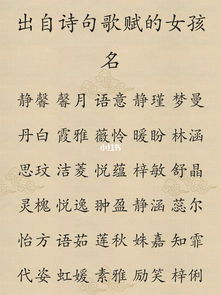 出自诗句歌赋的女孩
名
静馨 馨月 语意 静瑾 梦曼
丹白 霞雅 薇怜 暖盼 林涵
小红书
思玟 洁菱 悦蕴 梓敏 舒晶
灵槐 悦逸 翀盈 静涵 蕊尔
怡方 语茹 莲秋 姝嘉 知霏
代姿 虹媛 素雅 励笑 梓俐